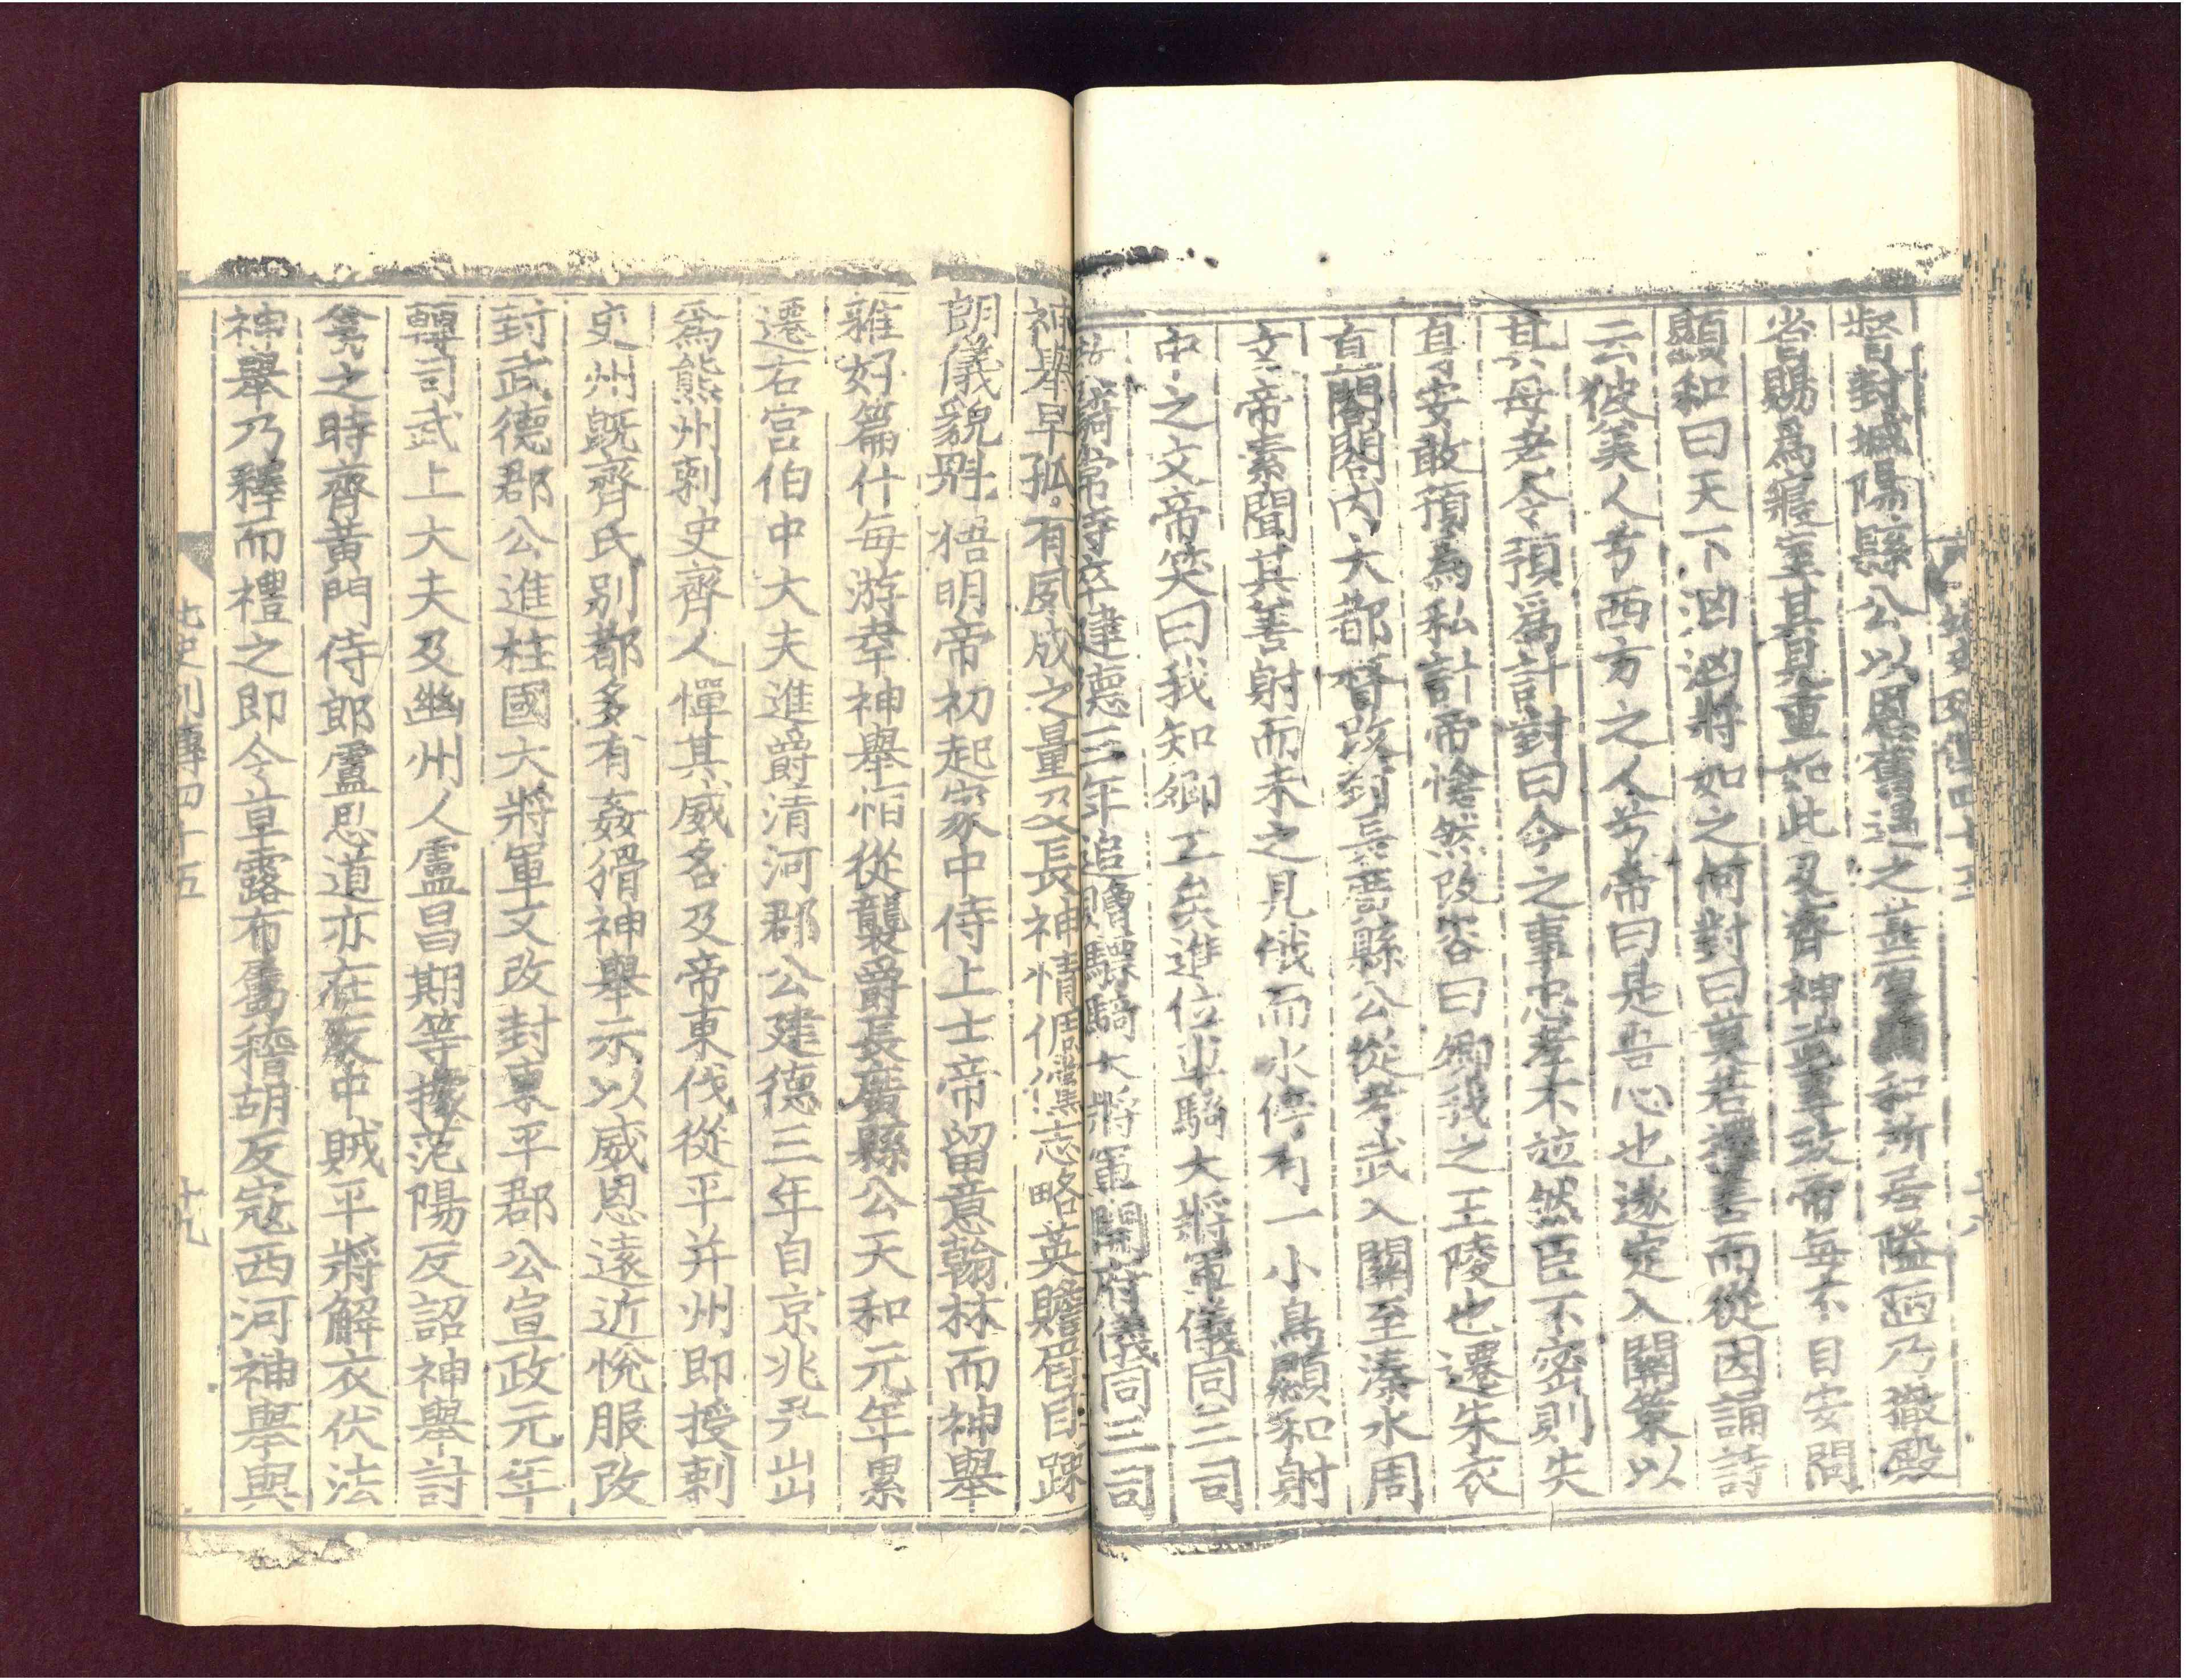 督封城陽縣公以恩舊遇之甚厚顯和所居隘陋乃撤殿
省賜爲寢室其見重如此及齊神武專政帝每不自安問
顯和曰天下洶洶將如之何對曰莫若擇善而從因誦詩
云彼美人兮西方之人兮帝曰是吾心也遂定入關策以
其母老令預爲計對曰今之事忠孝不並然臣不密則失
身安敢預為私計帝愴然改容曰卿我之王陵也遷朱衣
直閤閤內大都督改封長廣縣公從孝武入關至溱水周
文帝素聞其善射而未之見俄而水傍有一小鳥顯和射
中之文帝笑曰我知卿工矣進位車騎大將軍儀同三司
騎常侍卒建德三年追贈驃騎大將軍開府儀同三司
神舉早孤有夙成之量及長神情倜儻志略英贍眉目踈
朗儀貌魁梧明帝初起家中侍上士帝留意翰林而神舉
雅好篇什每游幸神舉恒從襲爵長廣縣公天和元年累
遷右宮伯中大夫進爵清河郡公建德三年自京兆尹出
爲熊州刺史齊人憚其威名及帝東伐從平并州即授刺
史州既齊氏別都多有姦猾神舉示以威恩遠近悅服改
封武德郡公進柱國大將軍又改封東平郡公宣政元年
轉司武上大夫及幽州人盧昌期等據范陽反詔神舉討
禽之時齊黃門侍郎盧思道亦在反中賊平將解衣伏法
神舉乃釋而禮之即令草露布屬稽胡反寇西河神舉與
北史列傳四十五
十九